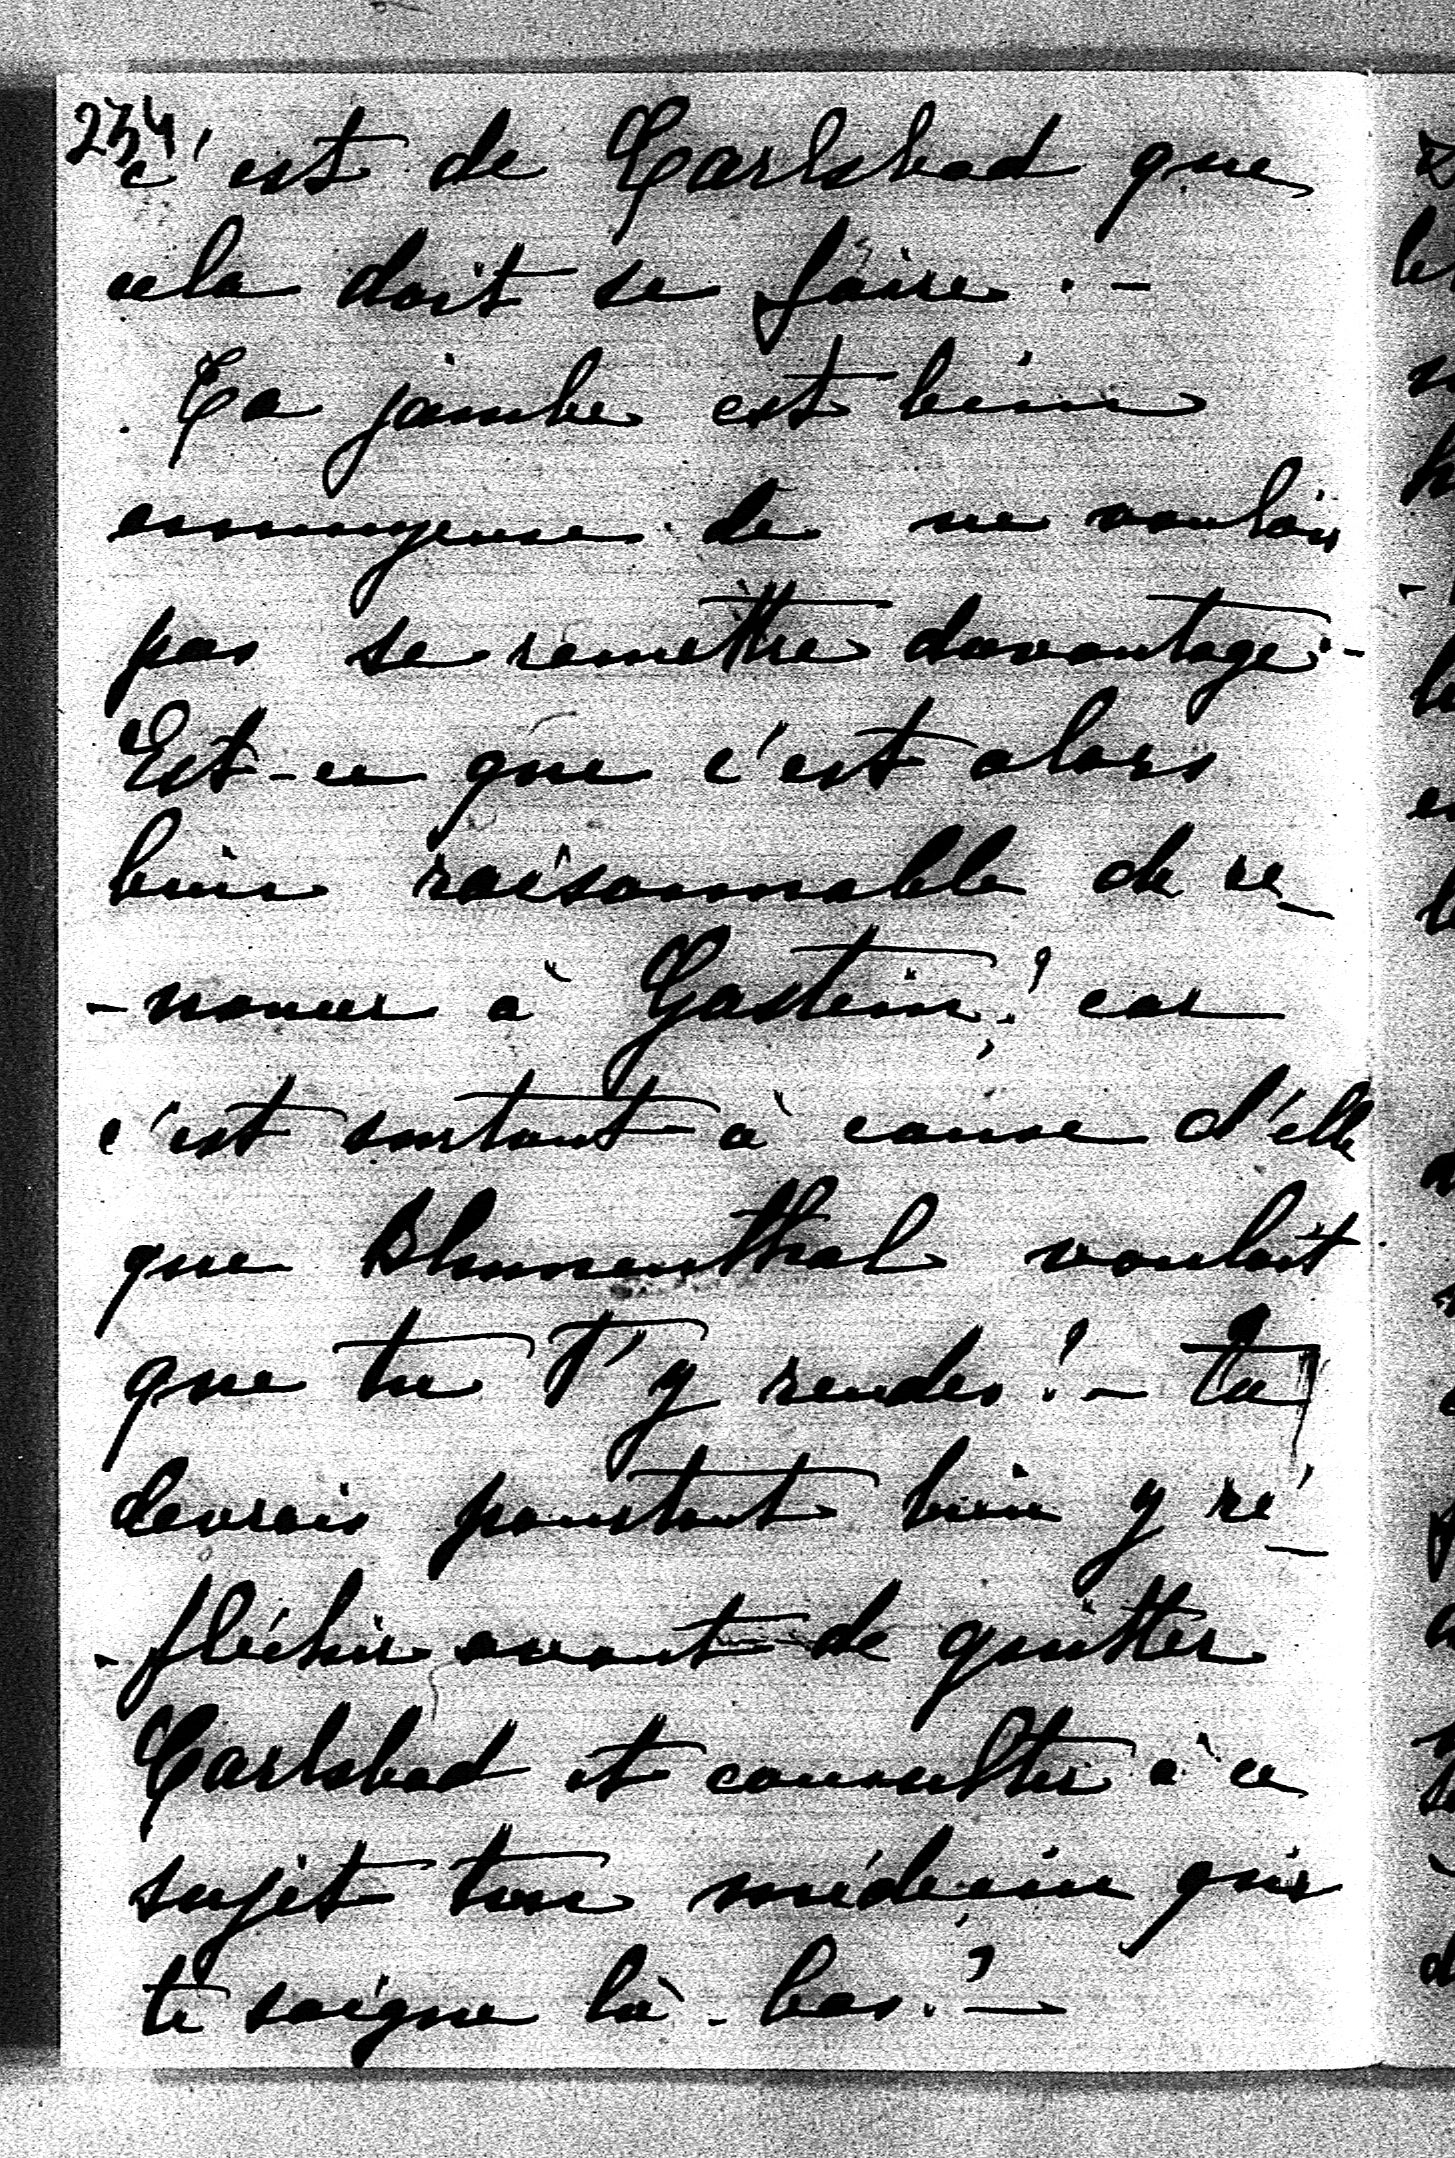 234
c'est de Carlsbad que
cela doit se faire. -
Ta jambe est bien
ennuyeuse de ne vouloir
pas se remettre davantage. -
Est-ce que c'est alors
bien raisonnable de re_
- noncer à Gastein? car
c'est surtout à cause d'elle
que Blumenthal voulait
que tu t'y rendes! - Tu
devrais pourtant bien y ré_
- fléchir avant de quitter
Carlsbad et consulter à ce
sujet ton médecin qui
te soigne là-bas! -